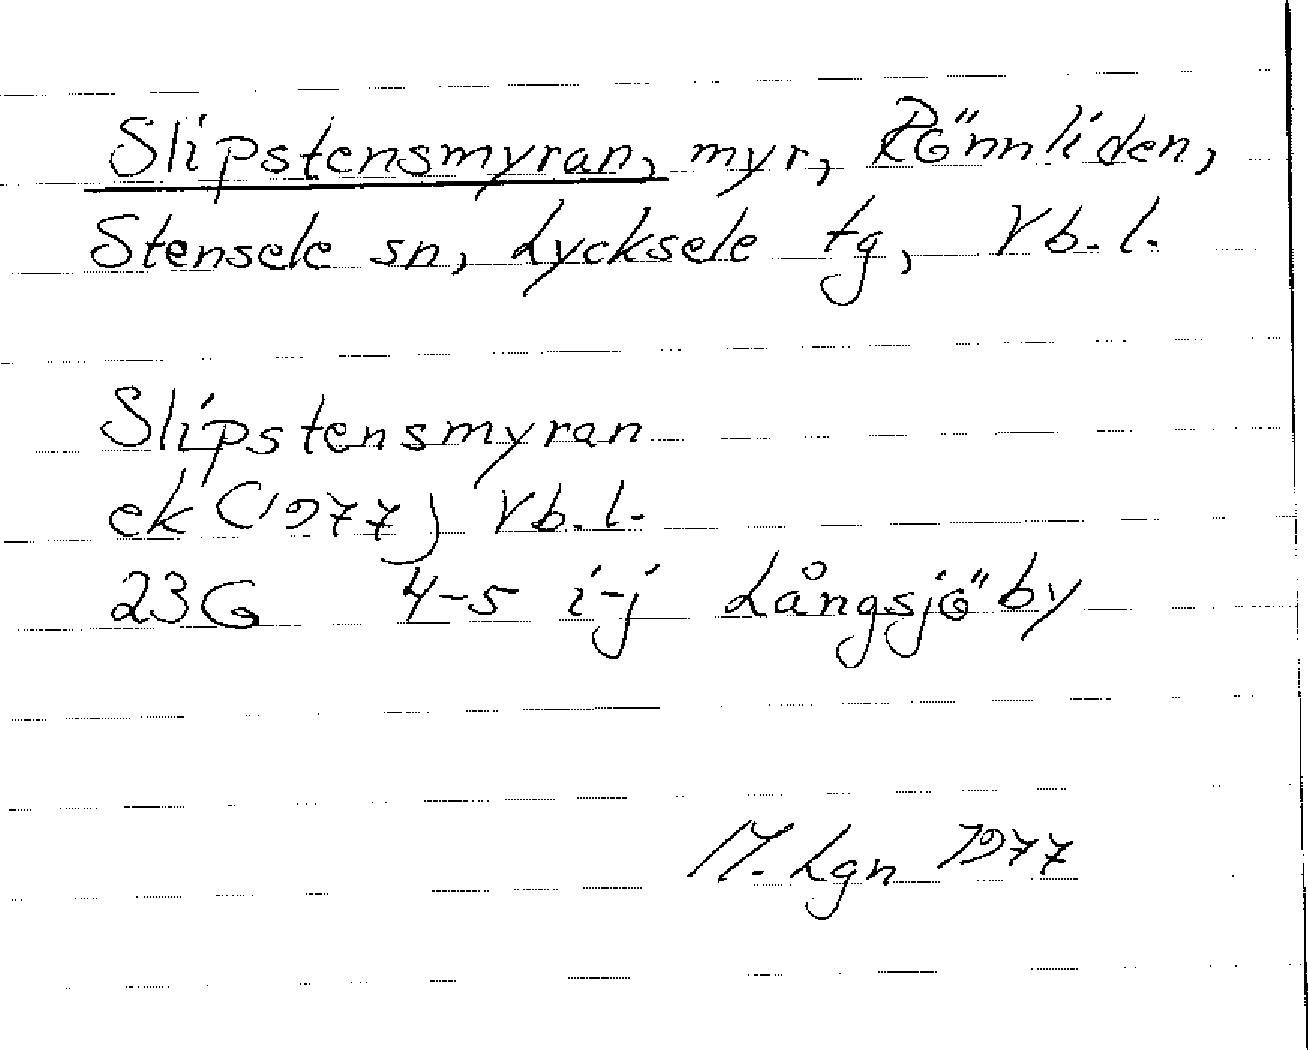 Slipstensmyran, myr, Rönnliden,
Stensele sn, Lycksele tg, Vb. l.
Slipstensmyran
ek (1977) Vb. l.
23G 4-5 i-j Långsjöby
M. Lgn 1977